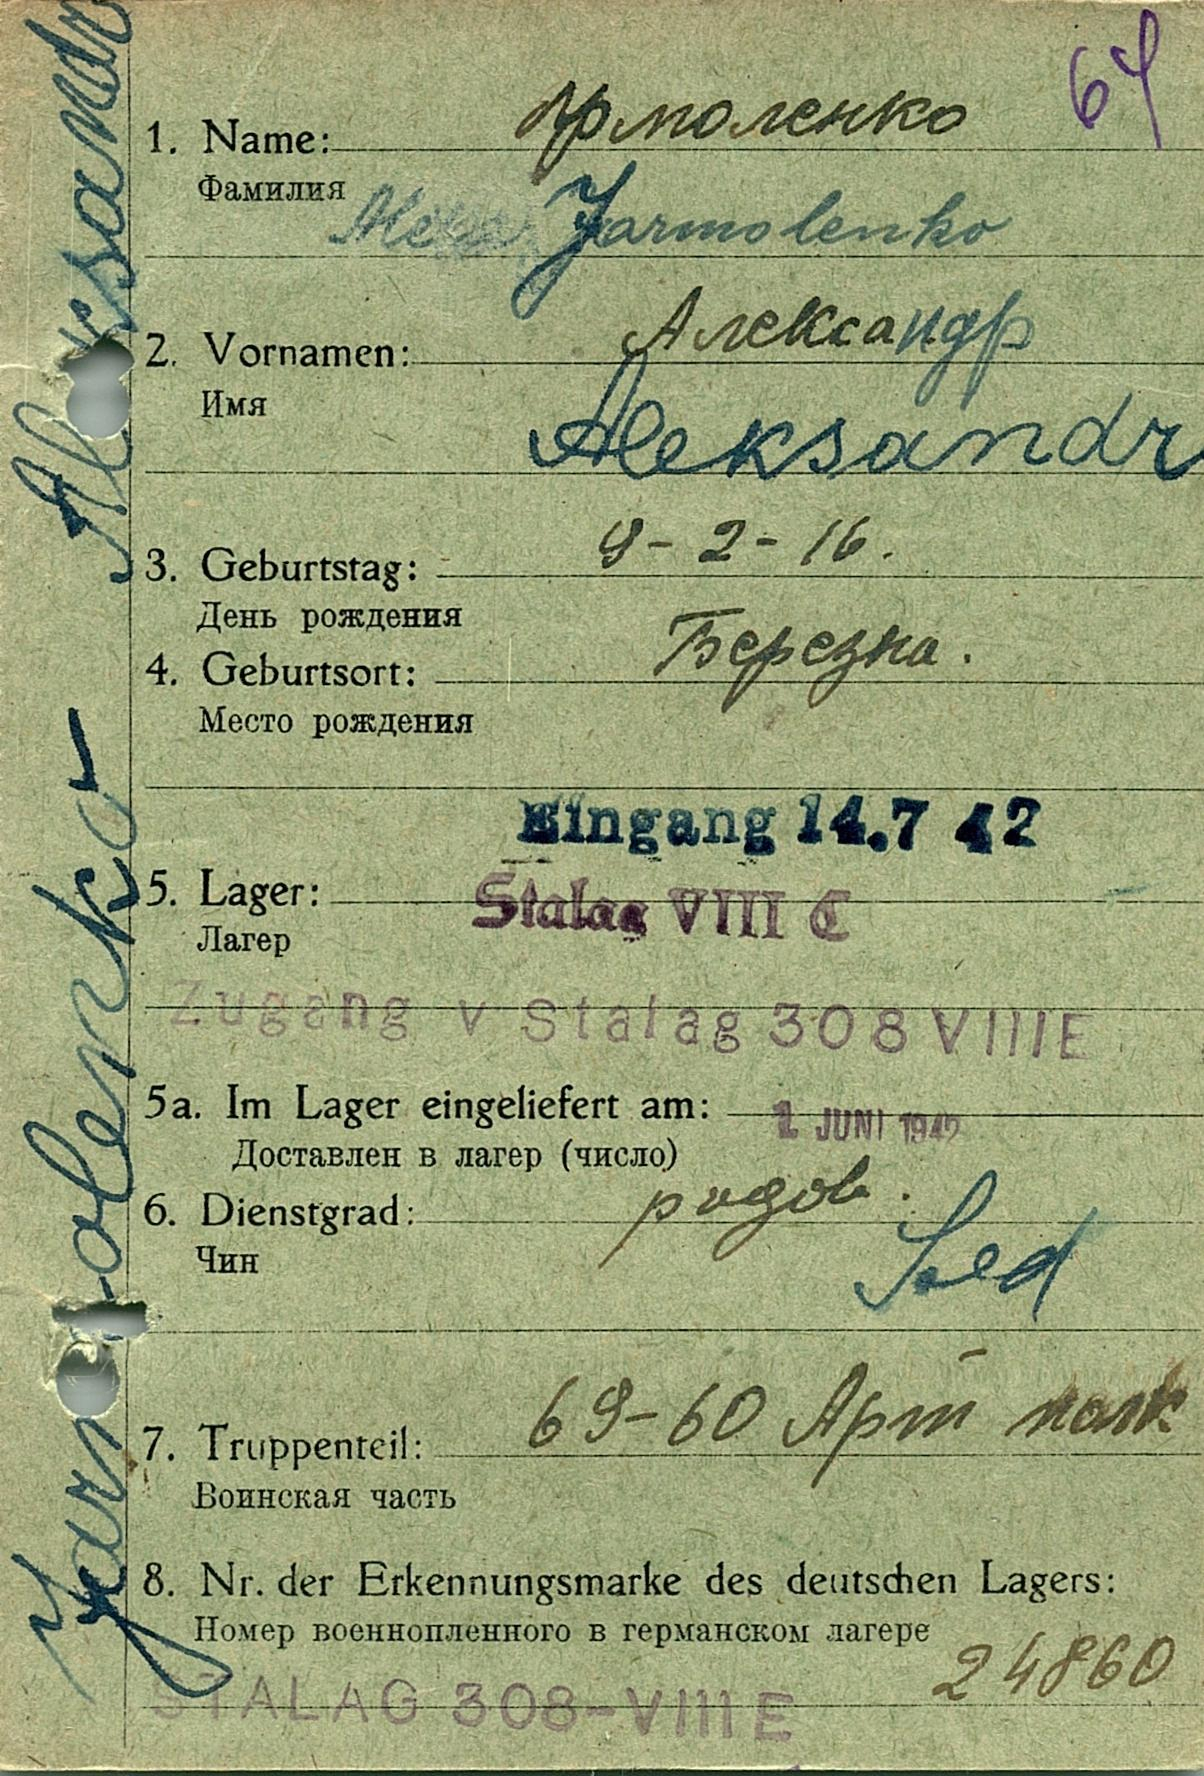 64
1. Name: Ярмоленко
Фамилия
Jarmolenko
2. Vornamen: Александр
Имя
Aleksandr
3. Geburtstag: 9-2-16.
День рождения
4. Geburtsort: Березна.
Место рождения
Eingang 14.7 42
5. Lager: Stalag VIII C
Лагер
Zugang v Stalag 308 VIIIE
5a. Im Lager eingeliefert am: JUNI 1942
Доставлен в лагер (число)
6. Dienstgrad: рядов.
Чин
Sold
7. Truppenteil: 69-60 Арт полк
Воинская часть
8. Nr. der Erkennungsmarke des deutschen Lagers:
Номер военнопленного в германском лагере
24860
STALAG 308-VIIIE
Jarmolenko Aleksandr